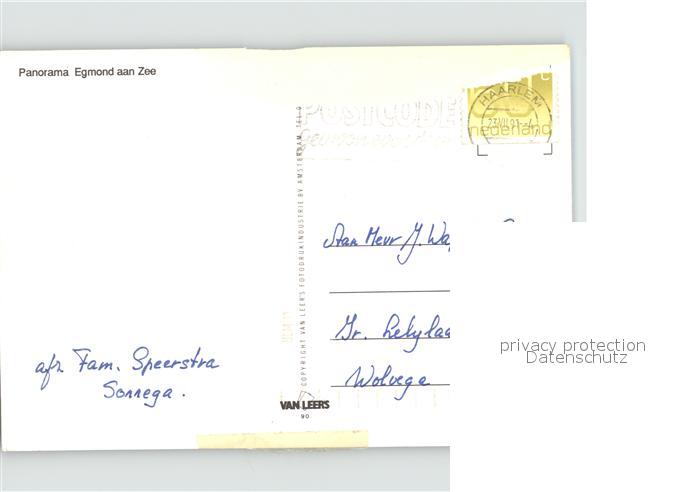 Panorama Egmond aan Zee
POSTCODE
HAARLEM
23.VII.91.-4
nederland
COPYRIGHT VAN LEER'S FOTODRUKINDUSTRIE BV AMSTERDAM
J. Wa
Gr. Lelylaa
Wolvega
afz. Fam. Speerstra
Sonnega.
VAN LEERS
90
privacy protection
Datenschutz